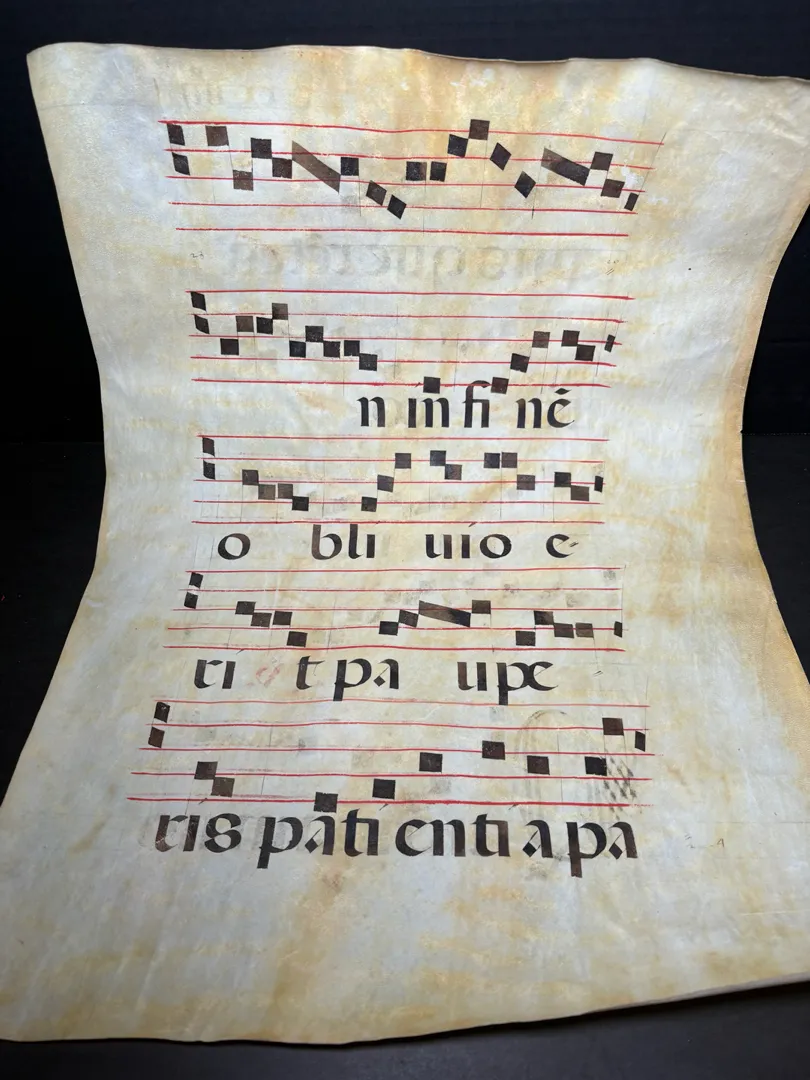 n in fi nē
o bli uio e
ri t pa upe
ris pati enti a pa